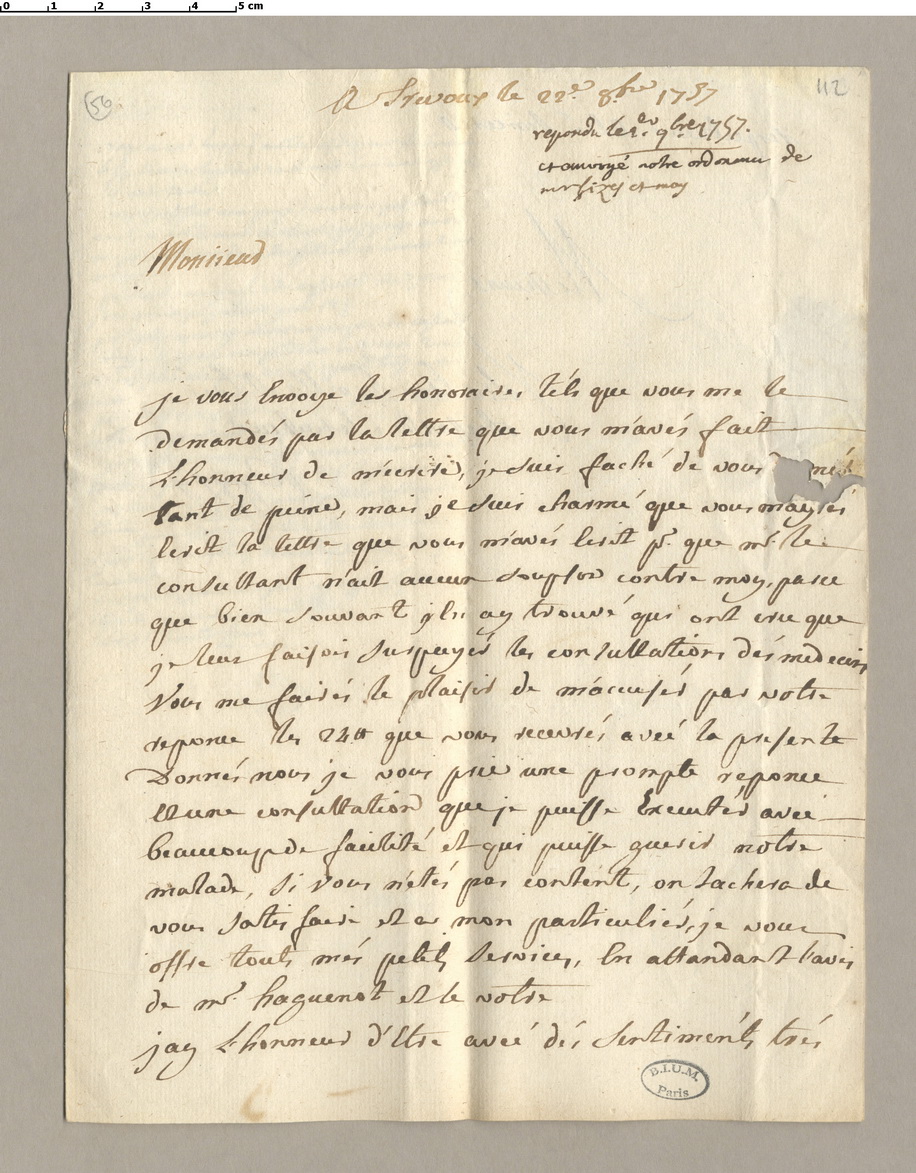 0 1 2 3 4 5 cm
56
112
A Trevoux le 22e 8bre 1757
repondu le 2e 9bre 1757.
et envoyé notre ordonance de
mr fizes et moy
Monsieur
je vous Envoye les honoraires téls que vous me le
demandés par la lettre que vous m'avés fait
L'honneur de m'ecrire, je suis faché de vous
tant de peine, mais je suis charmé que vous m'ayiés
Ecrit la lettre que vous m'avés Ecrit pr. que mr. le
consultant n'ait aucun soupson contre moy, parce
que bien souvant j'En ay trouvé qui ont cru que
je leur faisois surpayér les consultations dés medecins
Vous me fairés le plaisir de m'accusér par votre
reponce les 24lt que vous recevrés aveé la presente
Donnés nous je vous prie une prompte reponce
Et une consultation que je puisse Executér aveé
beaucoup de facilité et qui puisse guerir notre
malade, si vous n'etés pas content, on tachera de
vous satisfaire et a mon particuliér, je vous
offre touts més petits services, En attandant l'avis
de mr. haguenot et le votre
jay L'honneur d'Etre aveé dés sentiments trés
B.I.U.M.
Paris